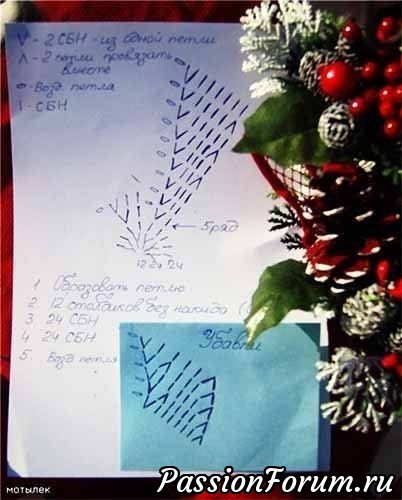 V - 2 СБН - из одной петли
Λ - 2 петли провязать
вместе
0 - Возд. петля
I - СБН
5 ряд
12 24 24
1 Образовать петлю
2. 12 столбиков без накида (
3 24 СБН
4 24 СБН
5. Возд петля
Убавки
мотылек
PassionForum.ru